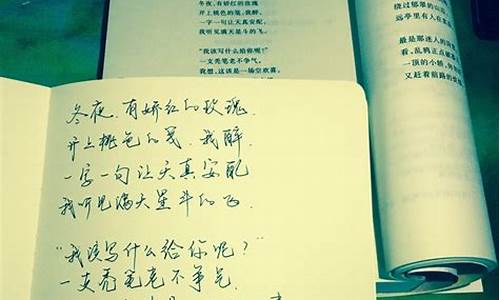 冬夜,有娇红的玫瑰
开上桃色的笺,我醉,
一字一句让天真安配,
我听见满天星斗的飞。
“我该写什么给你呢?”
一支秃笔老不争气,
我想,这该是一场空欢喜,
绕过郁郁的山
远亭里有人在
最是那迷人的
看,乱鸦正点破
一顶的小轿,
又赶着前路的
冬夜,有娇红的玫瑰,
开上桃色的笺,我醉,
一字一句让天真安配
我听见满天星斗的飞.
“我该写什么给你呢?”
一支秃笔老不争气,